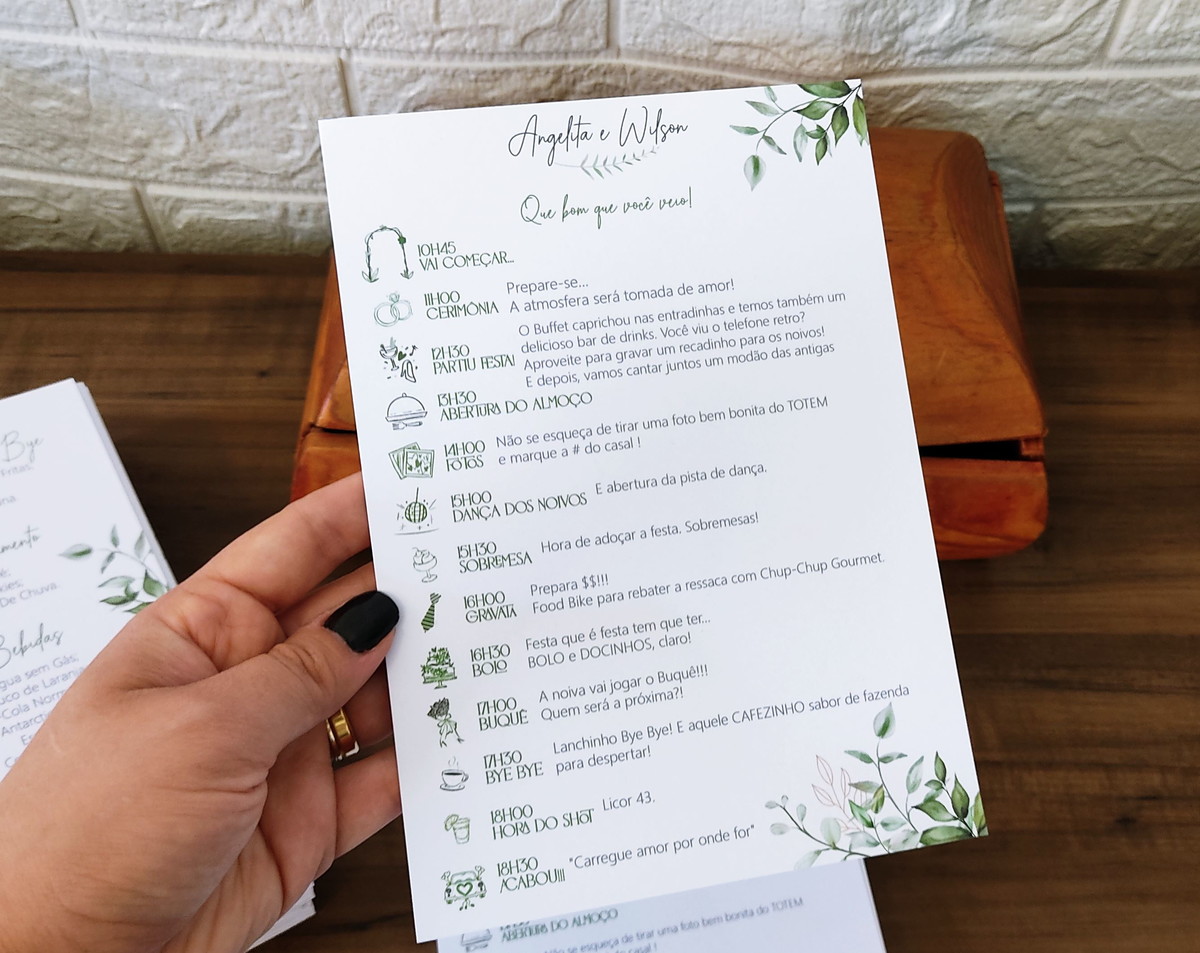 Angelita e Wilson
Que bom que você veio!
10H45
VAI COMEÇAR...
11H00
CERIMÔNIA
Prepare-se...
A atmosfera será tomada de amor!
12H30
PARTIU FESTA!
O Buffet caprichou nas entradinhas e temos também um
delicioso bar de drinks. Você viu o telefone retro?
Aproveite para gravar um recadinho para os noivos!
E depois, vamos cantar juntos um modão das antigas
13H30
ABERTURA DO ALMOÇO
14H00
FOTOS
Não se esqueça de tirar uma foto bem bonita do TOTEM
e marque a # do casal !
15H00
DANÇA DOS NOIVOS
E abertura da pista de dança.
15H30
SOBREMESA
Hora de adoçar a festa. Sobremesas!
16H00
GRAVATA
Prepara $$!!!
Food Bike para rebater a ressaca com Chup-Chup Gourmet.
16H30
BOLO
Festa que é festa tem que ter...
BOLO e DOCINHOS, claro!
17H00
BUQUÊ
A noiva vai jogar o Buquê!!!
Quem será a próxima?!
17H30
BYE BYE
Lanchinho Bye Bye! E aquele CAFEZINHO sabor de fazenda
para despertar!
18H00
HORA DO SHOT
Licor 43.
18H30
ACABOU!!!
"Carregue amor por onde for"
Bye
Fritas.
De Chuva.
Bebidas
sem Gás,
de Laranja
ABERTURA DO ALMOÇO
se esqueça de tirar uma foto bem bonita do TOTEM
do casal !